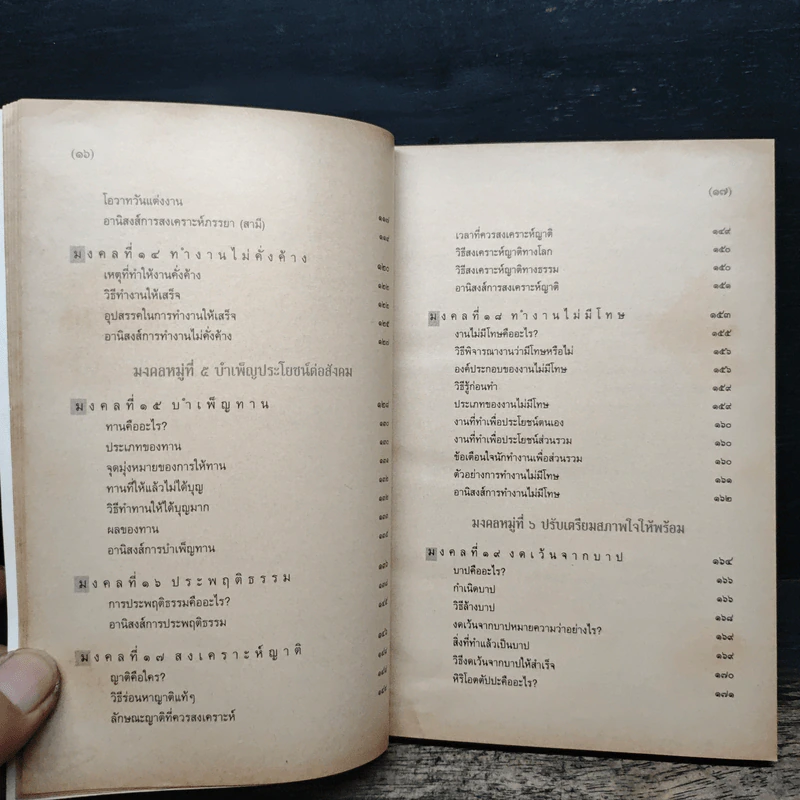 (๑๖)
โอวาทวันแต่งงาน
อานิสงส์การสงเคราะห์ภรรยา (สามี) ๑๑๘
๑๑๙
มงคลที่ ๑๔ ทำงานไม่คั่งค้าง ๑๒๐
เหตุที่ทำให้งานคั่งค้าง ๑๒๒
วิธีทำงานให้เสร็จ ๑๒๒
อุปสรรคในการทำงานให้เสร็จ ๑๒๕
อานิสงส์การทำงานไม่คั่งค้าง
มงคลหมู่ที่ ๕ บำเพ็ญประโยชน์ต่อสังคม
มงคลที่ ๑๕ บำเพ็ญทาน
ทานคืออะไร?
ประเภทของทาน
จุดมุ่งหมายของการให้ทาน
ทานที่ให้แล้วไม่ได้บุญ
วิธีทำทานให้ได้บุญมาก
ผลของทาน
อานิสงส์การบำเพ็ญทาน
มงคลที่ ๑๖ ประพฤติธรรม
การประพฤติธรรมคืออะไร?
อานิสงส์การประพฤติธรรม
มงคลที่ ๑๗ สงเคราะห์ญาติ
ญาติคือใคร?
วิธีร่อนหาญาติแท้ๆ
ลักษณะญาติที่ควรสงเคราะห์
(๑๗)
เวลาที่ควรสงเคราะห์ญาติ ๑๔๙
วิธีสงเคราะห์ญาติทางโลก ๑๕๐
วิธีสงเคราะห์ญาติทางธรรม ๑๕๐
อานิสงส์การสงเคราะห์ญาติ ๑๕๑
มงคลที่ ๑๘ ทำงานไม่มีโทษ ๑๕๓
งานไม่มีโทษคืออะไร? ๑๕๕
วิธีพิจารณางานว่ามีโทษหรือไม่ ๑๕๖
องค์ประกอบของงานไม่มีโทษ ๑๕๖
วิธีรู้ก่อนทำ ๑๕๙
ประเภทของงานไม่มีโทษ ๑๕๙
งานที่ทำเพื่อประโยชน์ตนเอง ๑๖๐
งานที่ทำเพื่อประโยชน์ส่วนรวม ๑๖๐
ข้อเตือนใจนักทำงานเพื่อส่วนรวม ๑๖๐
ตัวอย่างการทำงานไม่มีโทษ ๑๖๑
อานิสงส์การทำงานไม่มีโทษ ๑๖๒
มงคลหมู่ที่ ๖ ปรับเตรียมสภาพใจให้พร้อม
มงคลที่ ๑๙ งดเว้นจากบาป ๑๖๔
บาปคืออะไร? ๑๖๖
กำเนิดบาป ๑๖๖
วิธีล้างบาป ๑๖๘
งดเว้นจากบาปหมายความว่าอย่างไร? ๑๖๙
สิ่งที่ทำแล้วเป็นบาป ๑๖๙
วิธีงดเว้นจากบาปให้สำเร็จ ๑๗๐
หิริโอตตัปปะคืออะไร? ๑๗๑